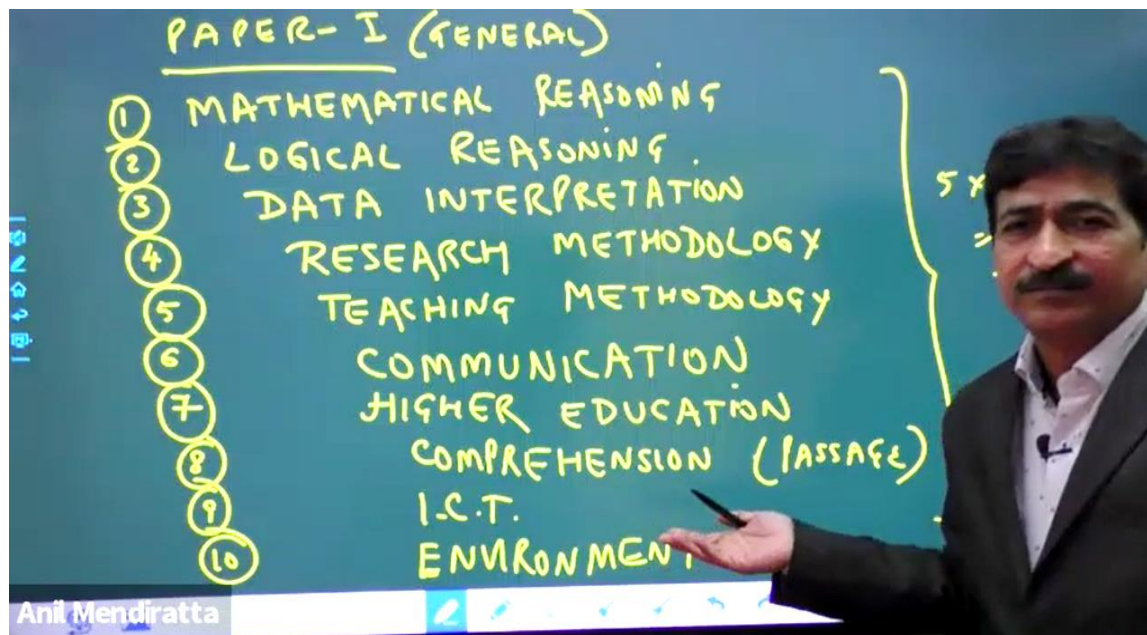 PAPER-I (GENERAL)
1 MATHEMATICAL REASONING
2 LOGICAL REASONING.
3 DATA INTERPRETATION
4 RESEARCH METHODOLOGY
5 TEACHING METHODOLOGY
6 COMMUNICATION
7 HIGHER EDUCATION
8 COMPREHENSION (PASSAGE)
9 I.C.T.
10 ENVIRONMENT
5 x
=
Anil Mendiratta